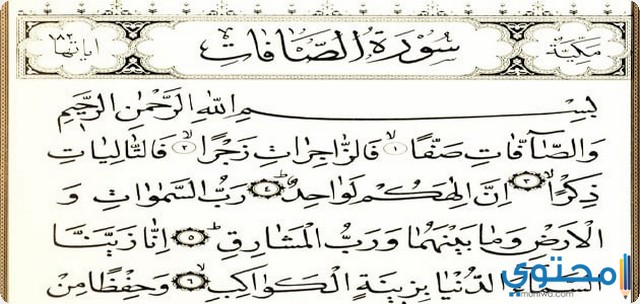 مكية سورة الصافات اياتها ١٨٢
بسم الله الرحمن الرحيم
وَالصَّآفَّاتِ صَفًّا ﴿١﴾ فَالزَّاجِرَاتِ زَجْرًا ﴿٢﴾ فَالتَّالِيَاتِ
ذِكْرًا ﴿٣﴾ اِنَّ اِلٰهَكُمْ لَوَاحِدٌ ﴿٤﴾ رَبُّ السَّمٰوَاتِ وَ
الْاَرْضِ وَمَا بَيْنَهُمَا وَرَبُّ الْمَشَارِقِ ﴿٥﴾ اِنَّا زَيَّنَّا
السَّمَاءَ الدُّنْيَا بِزِينَةٍ الْكَوَاكِبِ ﴿٦﴾ وَحِفْظًا مِنْ
محتوي